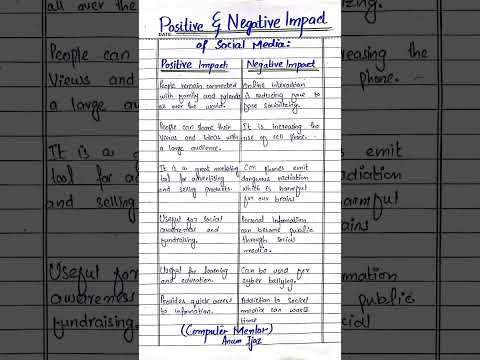 Positive & Negative Impact
DATE:
of Social Media:
Positive Impact
Negative Impact
People remain connected
with family and friends
all over the world.
Online interaction
is reducing face to
face socializing.
People can share their
views and ideas with
a large audience.
It is increasing the
use of cell phone.
It is a great marketing
tool for advertising
and selling products.
Cell phones emit
dangrous radiation
which is harmful
for our brains
Useful for social
awareness and
fundraising.
Personal Information
can become public
through social
media.
Useful for learning
and education.
Can be used for
cyber bullying.
Provides quick access
to information.
Addiction to social
media can waste
time
(Computer Mentor)
Anum Ijaz
all over the
People can
Views and
a large
It is a
tool for a
and selling
Useful for
awareness
fundraising
easing the
phone.
emit
adiction
armful
ains
rmation
public